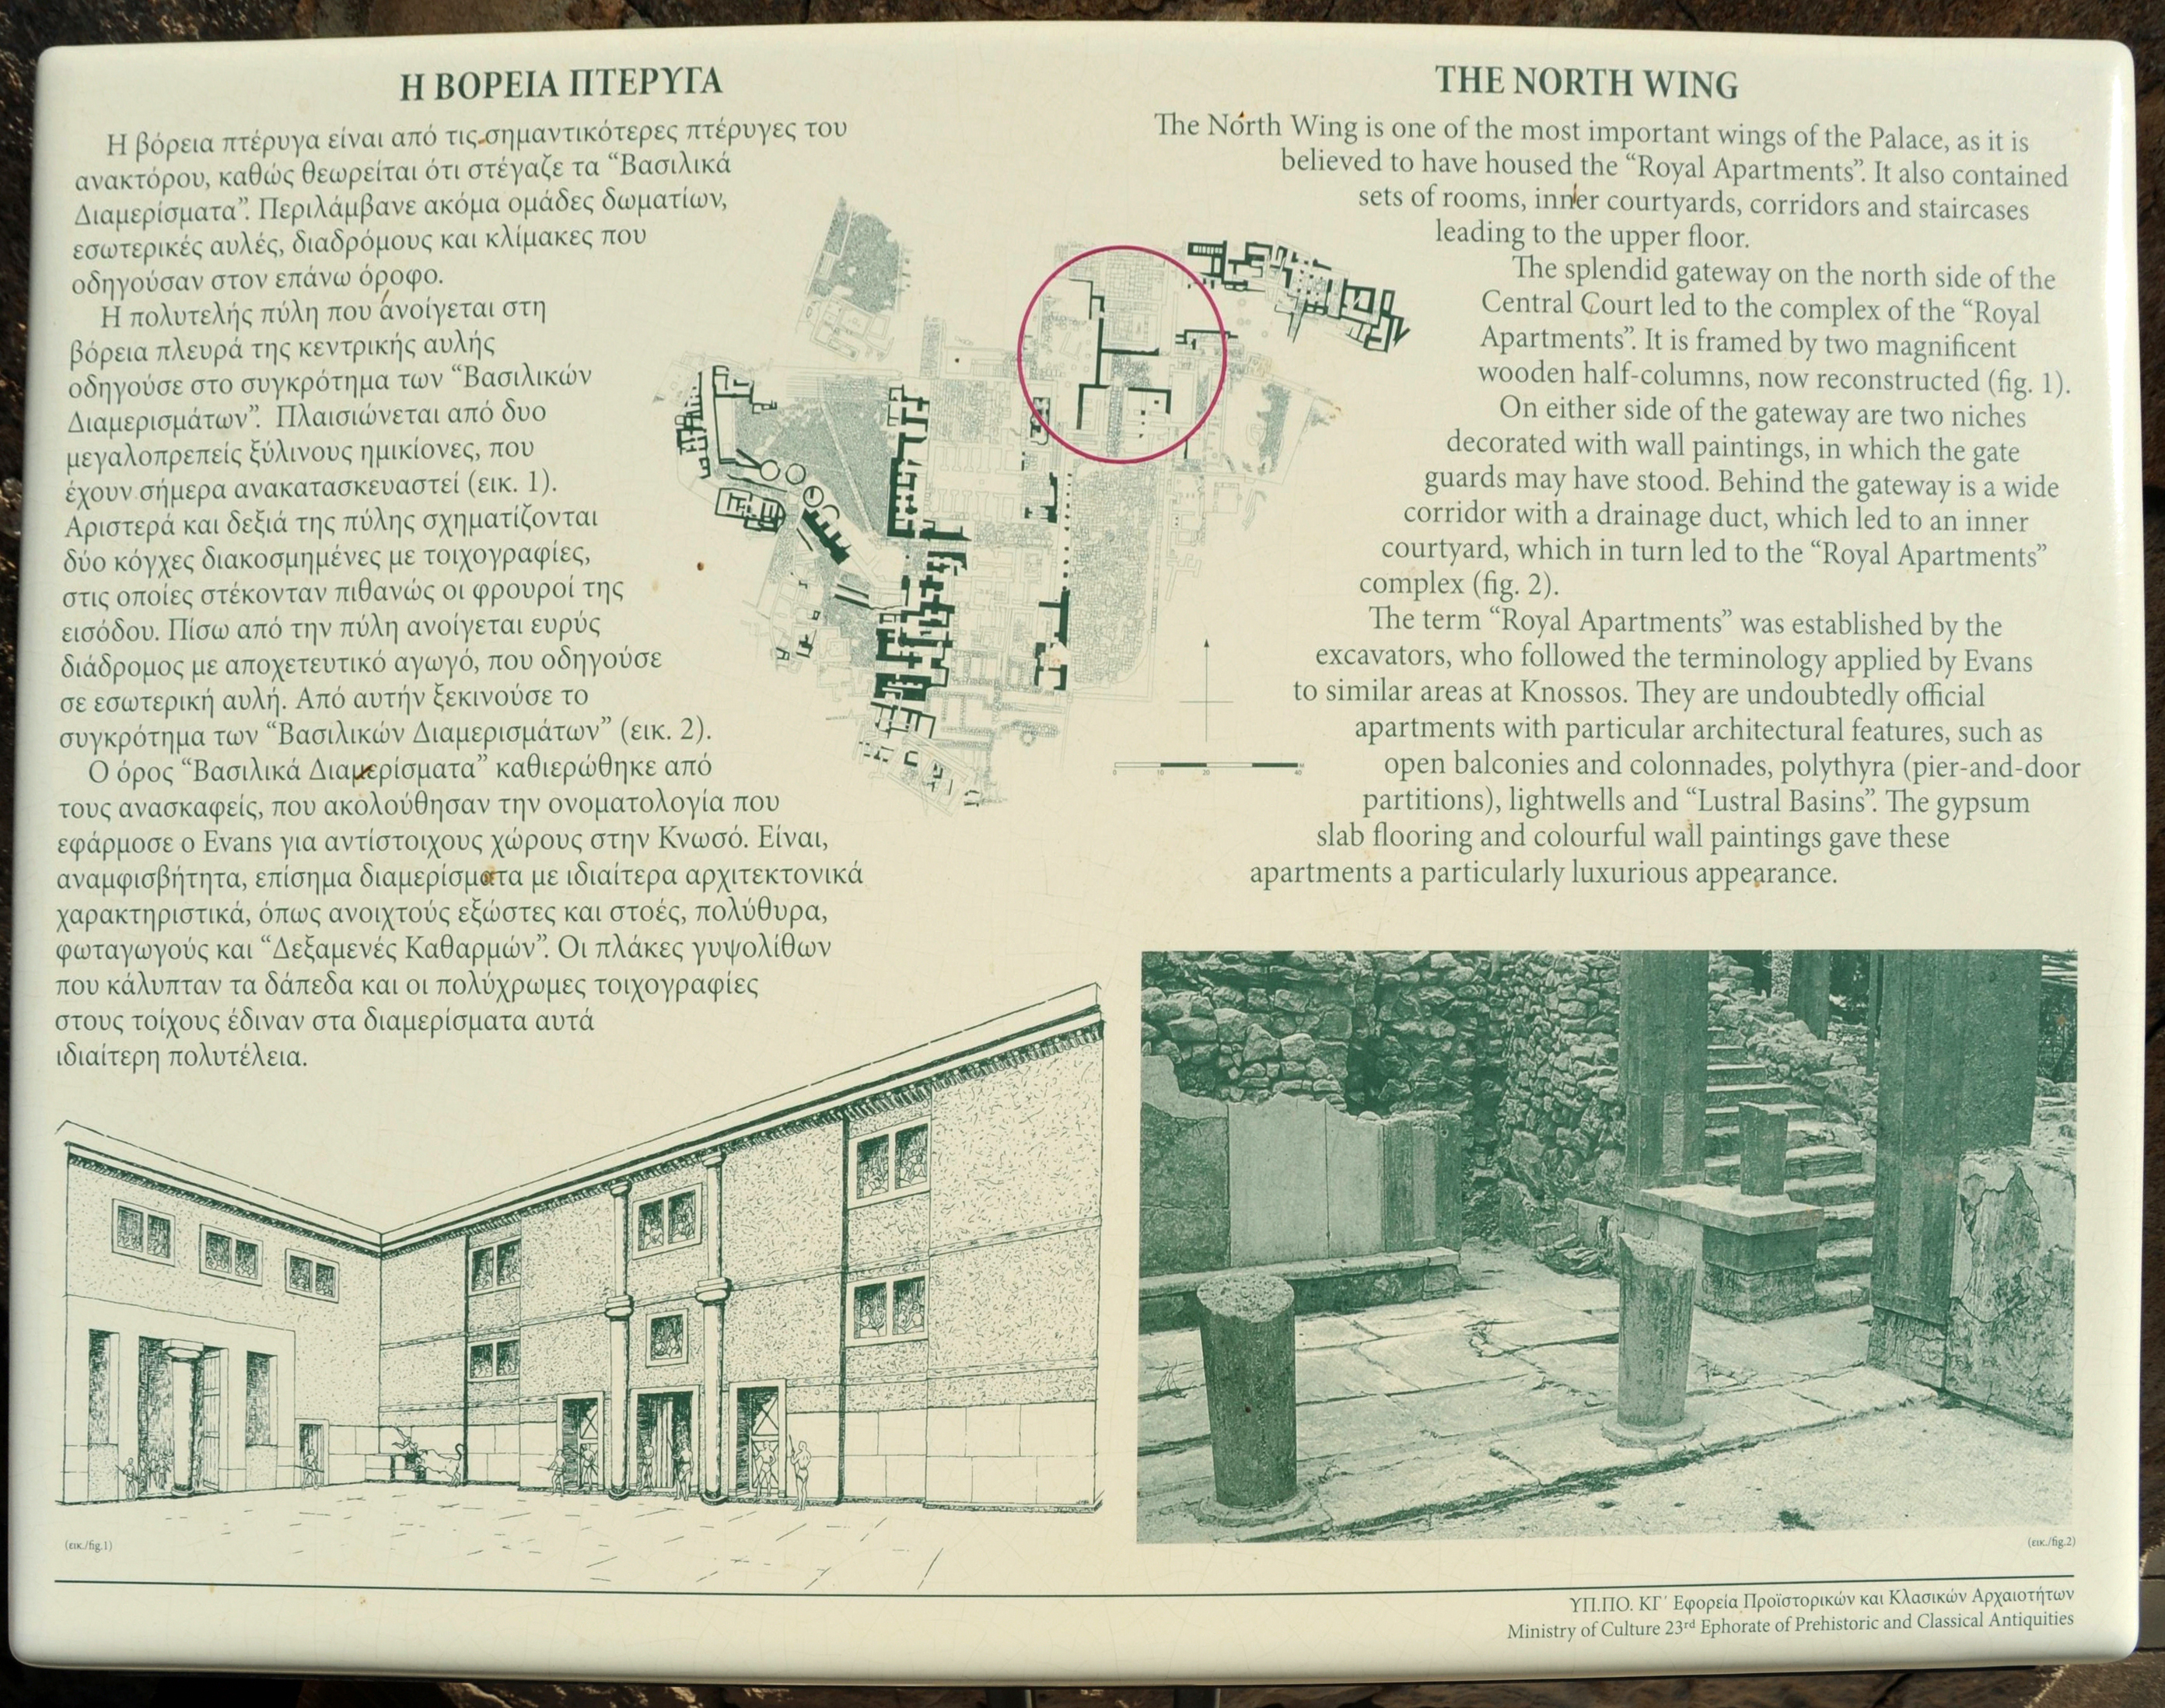 Η ΒΟΡΕΙΑ ΠΤΕΡΥΓΑ
Η βόρεια πτέρυγα είναι από τις σημαντικότερες πτέρυγες του
ανακτόρου, καθώς θεωρείται ότι στέγαζε τα “Βασιλικά
Διαμερίσματα”. Περιλάμβανε ακόμα ομάδες δωματίων,
εσωτερικές αυλές, διαδρόμους και κλίμακες που
οδηγούσαν στον επάνω όροφο.
Η πολυτελής πύλη που ανοίγεται στη
βόρεια πλευρά της κεντρικής αυλής
οδηγούσε στο συγκρότημα των “Βασιλικών
Διαμερισμάτων”. Πλαισιώνεται από δυο
μεγαλοπρεπείς ξύλινους ημικίονες, που
έχουν σήμερα ανακατασκευαστεί (εικ. 1).
Αριστερά και δεξιά της πύλης σχηματίζονται
δύο κόγχες διακοσμημένες με τοιχογραφίες,
στις οποίες στέκονταν πιθανώς οι φρουροί της
εισόδου. Πίσω από την πύλη ανοίγεται ευρύς
διάδρομος με αποχετευτικό αγωγό, που οδηγούσε
σε εσωτερική αυλή. Από αυτήν ξεκινούσε το
συγκρότημα των “Βασιλικών Διαμερισμάτων” (εικ. 2).
Ο όρος “Βασιλικά Διαμερίσματα” καθιερώθηκε από
τους ανασκαφείς, που ακολούθησαν την ονοματολογία που
εφάρμοσε ο Evans για αντίστοιχους χώρους στην Κνωσό. Είναι,
αναμφισβήτητα, επίσημα διαμερίσματα με ιδιαίτερα αρχιτεκτονικά
χαρακτηριστικά, όπως ανοιχτούς εξώστες και στοές, πολύθυρα,
φωταγωγούς και “Δεξαμενές Καθαρμών”. Οι πλάκες γυψολίθων
που κάλυπταν τα δάπεδα και οι πολύχρωμες τοιχογραφίες
στους τοίχους έδιναν στα διαμερίσματα αυτά
ιδιαίτερη πολυτέλεια.
THE NORTH WING
The North Wing is one of the most important wings of the Palace, as it is
believed to have housed the “Royal Apartments”. It also contained
sets of rooms, inner courtyards, corridors and staircases
leading to the upper floor.
The splendid gateway on the north side of the
Central Court led to the complex of the “Royal
Apartments”. It is framed by two magnificent
wooden half-columns, now reconstructed (fig. 1).
On either side of the gateway are two niches
decorated with wall paintings, in which the gate
guards may have stood. Behind the gateway is a wide
corridor with a drainage duct, which led to an inner
courtyard, which in turn led to the “Royal Apartments”
complex (fig. 2).
The term “Royal Apartments” was established by the
excavators, who followed the terminology applied by Evans
to similar areas at Knossos. They are undoubtedly official
apartments with particular architectural features, such as
open balconies and colonnades, polythyra (pier-and-door
partitions), lightwells and “Lustral Basins”. The gypsum
slab flooring and colourful wall paintings gave these
apartments a particularly luxurious appearance.
0 10 20 40
(εικ./fig.1)
(εικ./fig.2)
ΥΠ.ΠΟ. ΚΓ΄ Εφορεία Προϊστορικών και Κλασικών Αρχαιοτήτων
Ministry of Culture 23rd Ephorate of Prehistoric and Classical Antiquities